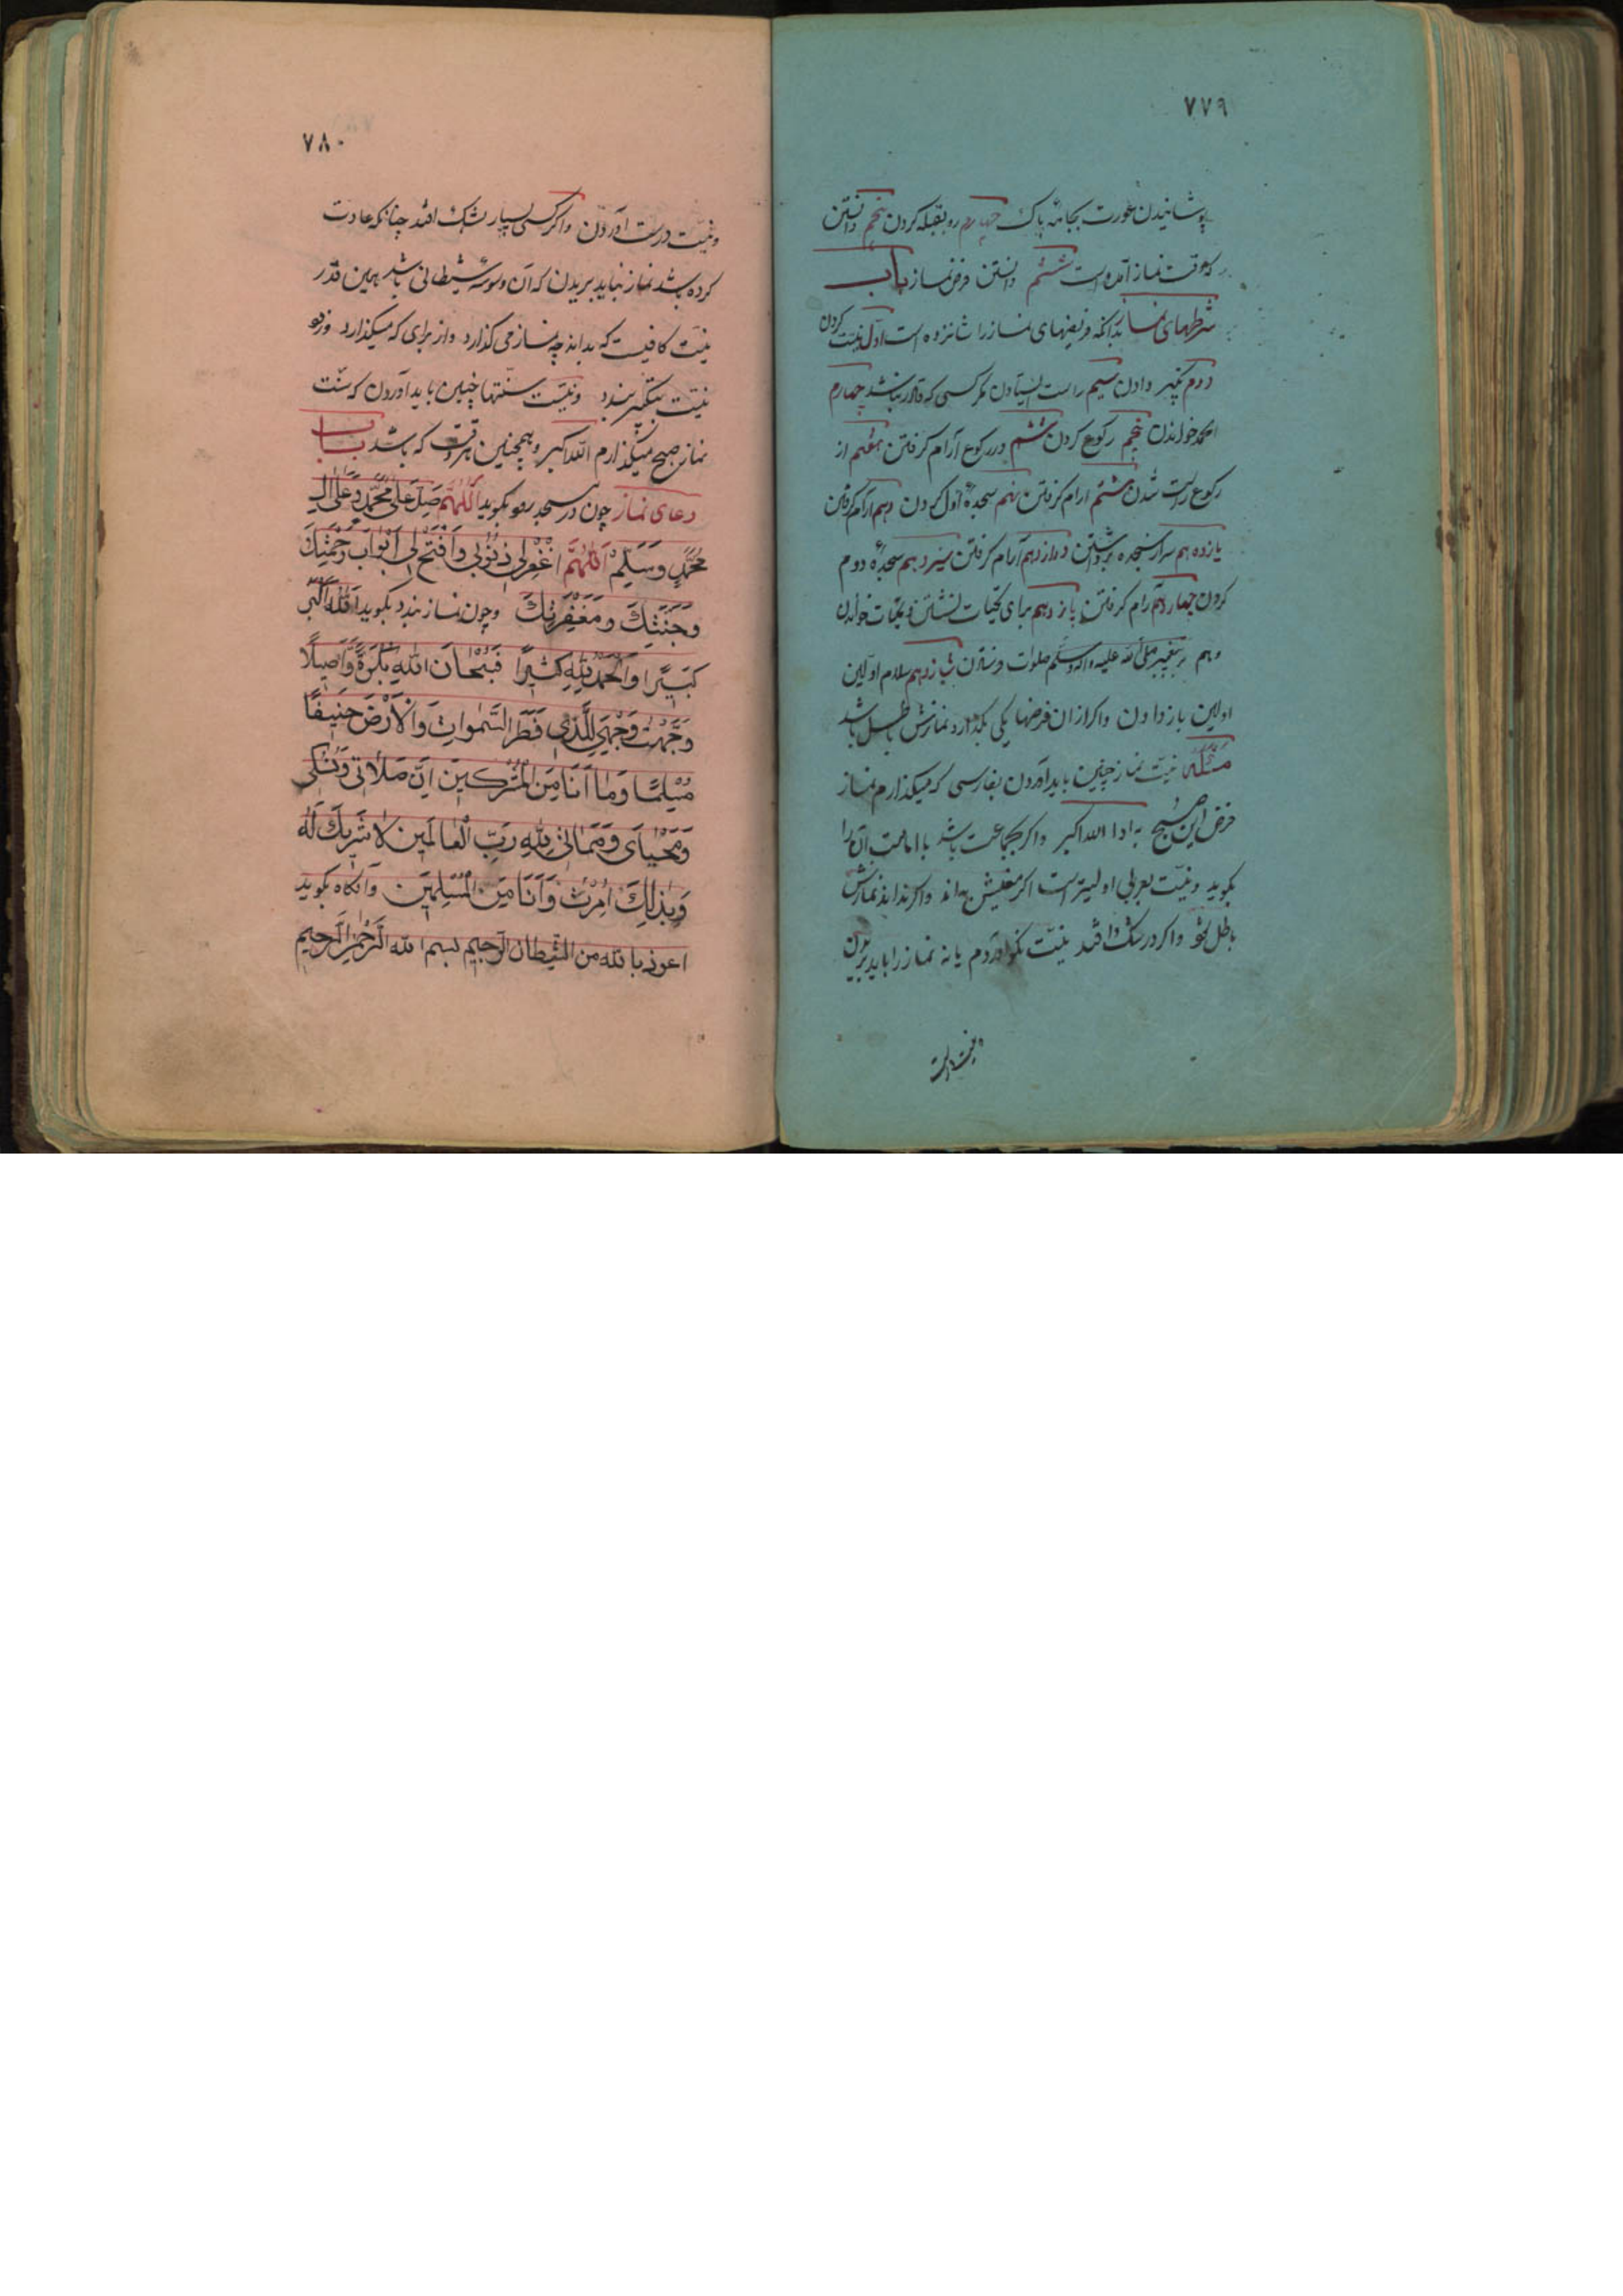 ۷۷۹
پوشانیدن عورت بجامه پاک چهارم رو بقبله کردن پنجم دانستن
که وقت نماز آمده است ششم دانستن فرض نماز باب
شرطهای نماز بدانکه فریضهای نماز را شانزده است اول نیت کردن
دوم تکبیر دادن سیم راست ایستادن مکر کسی که قادر نباشد چهارم
الحمد خواندن پنجم رکوع کردن ششم در رکوع آرام کرفتن هفتم از
رکوع راست شدن هشتم ارام کرفتن نهم سجدهٔ اول کردن دهم ارام کرفتن
یازدهم سر از سجده برداشتن دوازدهم آرام کرفتن سیزدهم سجدهٔ دوم
کردن چهاردهم آرام کرفتن پازدهم برای تحیات نشستن و تحیات خواندن
وهم بر پیغمبر صلی الله علیه واله وسلم صلوات فرستادن شازدهم سلام اولین
اولین باز دادن واکر ازان فرضها یکی بکذارد نمازش باطل باشد
مسئله نیت نماز چنین باید آوردن بفارسی که میکذارم نماز
فرض این صبح به ادا الله اکبر واکر بجماعت باشد با امامت آن را
بکوید ونیت بعربی اولیتر است اکر معنیش بداند واکر نداند نمازش
باطل شود واکر در شک افتد نیت نکو آوردم یا نه نماز را باید بریدن
ونیت درست
۷۸۰
ونیت درست آوردن واکر کسی بسیار بشک افتد چنانکه عادت
کرده باشد نماز نباید بریدن که آن وسوسه شیطانی باشد همین قدر
نیت کافیست که بداند چه نماز می کذارد واز برای که میکذارد وزود
نیت بتکبیر بندد ونیت سنتها چنین باید آوردن که سنت
نماز صبح میکذارم الله اکبر وهمچنین هر وقت که باشد باب
دعای نماز چون در مسجد رود بکوید اَللّٰهُمَّ صَلِّ عَلٰی مُحَمَّدٍ وَعَلٰی اٰلِ
مُحَمَّدٍ وَسَلِّمْ اَللّٰهُمَّ اغْفِرْلِی ذُنُوْبِی وَافْتَحْ لِی اَبْوَابَ رَحْمَتِكَ
وَجَنَّتِكَ وَمَغْفِرَتِكَ وچون نماز بندد بکوید اَللّٰهُ اَکْبَر
کَبِیْرًا وَالْحَمْدُ لِلّٰهِ کَثِیْرًا فَسُبْحَانَ اللّٰهِ بُکْرَةً وَّاَصِیْلًا
وَجَّهْتُ وَجْهِیَ لِلَّذِی فَطَرَ السَّمٰوَاتِ وَالْاَرْضَ حَنِیْفًا
مُسْلِمًا وَمَا اَنَا مِنَ الْمُشْرِکِیْنَ اِنَّ صَلَاتِی وَنُسُکِی
وَمَحْیَایَ وَمَمَاتِی لِلّٰهِ رَبِّ الْعَالَمِیْنَ لَا شَرِیْكَ لَهُ
وَبِذٰلِكَ اُمِرْتُ وَاَنَا مِنَ الْمُسْلِمِیْنَ وآنکاه بکوید
اعوذ بالله من الشیطان الرجیم بسم الله الرحمن الرحیم